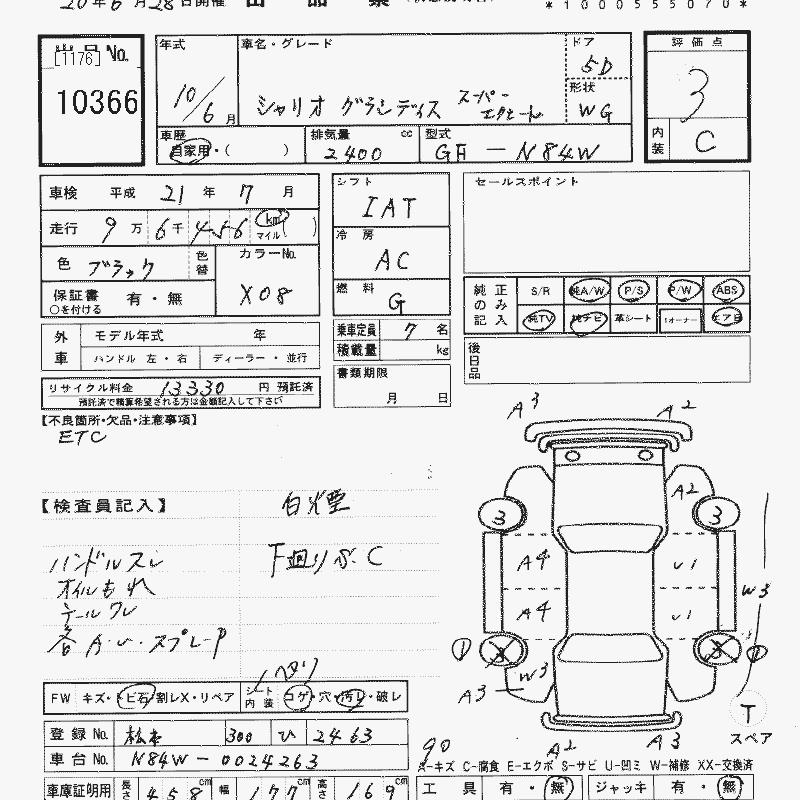 20年6月28日開催 出品票
*1000555070*
出品No.
[1176]
10366
年式 10/6月
車名・グレード
シャリオ グランディス スーパー
エクシード
ドア 5D
形状 WG
評価点
3
内装 C
車歴 自家用・( )
排気量 cc 2400
型式 GH-N84W
車検 平成 21年 7月
走行 9万6千456 km マイル ( )
色 ブラック 色替
カラーNo. X08
保証書 有・無
○を付ける
シフト IAT
冷房 AC
燃料 G
セールスポイント
純正のみ記入 S/R 純A/W P/S P/W ABS
純TV 純ナビ 革シート 1オーナー エアB
外車 モデル年式 年
ハンドル 左・右 ディーラー・並行
乗車定員 7名
積載量 kg
後日品
リサイクル料金 13330 円 預託済
預託済で精算希望される方は金額記入して下さい
書類期限
月 日
【不良箇所・欠品・注意事項】
ETC
【検査員記入】
白光塗
ハンドルスレ
下廻りサビC
オイルもれ
テールワレ
各A・U・スプレーP
A3 A2
A2
3 3
A4 U1
A4 U1
W3
W3
A3
T
スペア
90
A2 A3
FW キズ・トビ石・割レX・リペア
シート内装 コゲ・穴・汚レ・破レ
ヘタリ
登録No. 松本 300 ひ 2463
車台No. N84W-0024263
A-キズ C-腐食 E-エクボ S-サビ U-凹ミ W-補修 XX-交換済
車庫証明用 長さ 458cm 幅 177cm 高さ 169cm
工具 有・無 ジャッキ 有・無